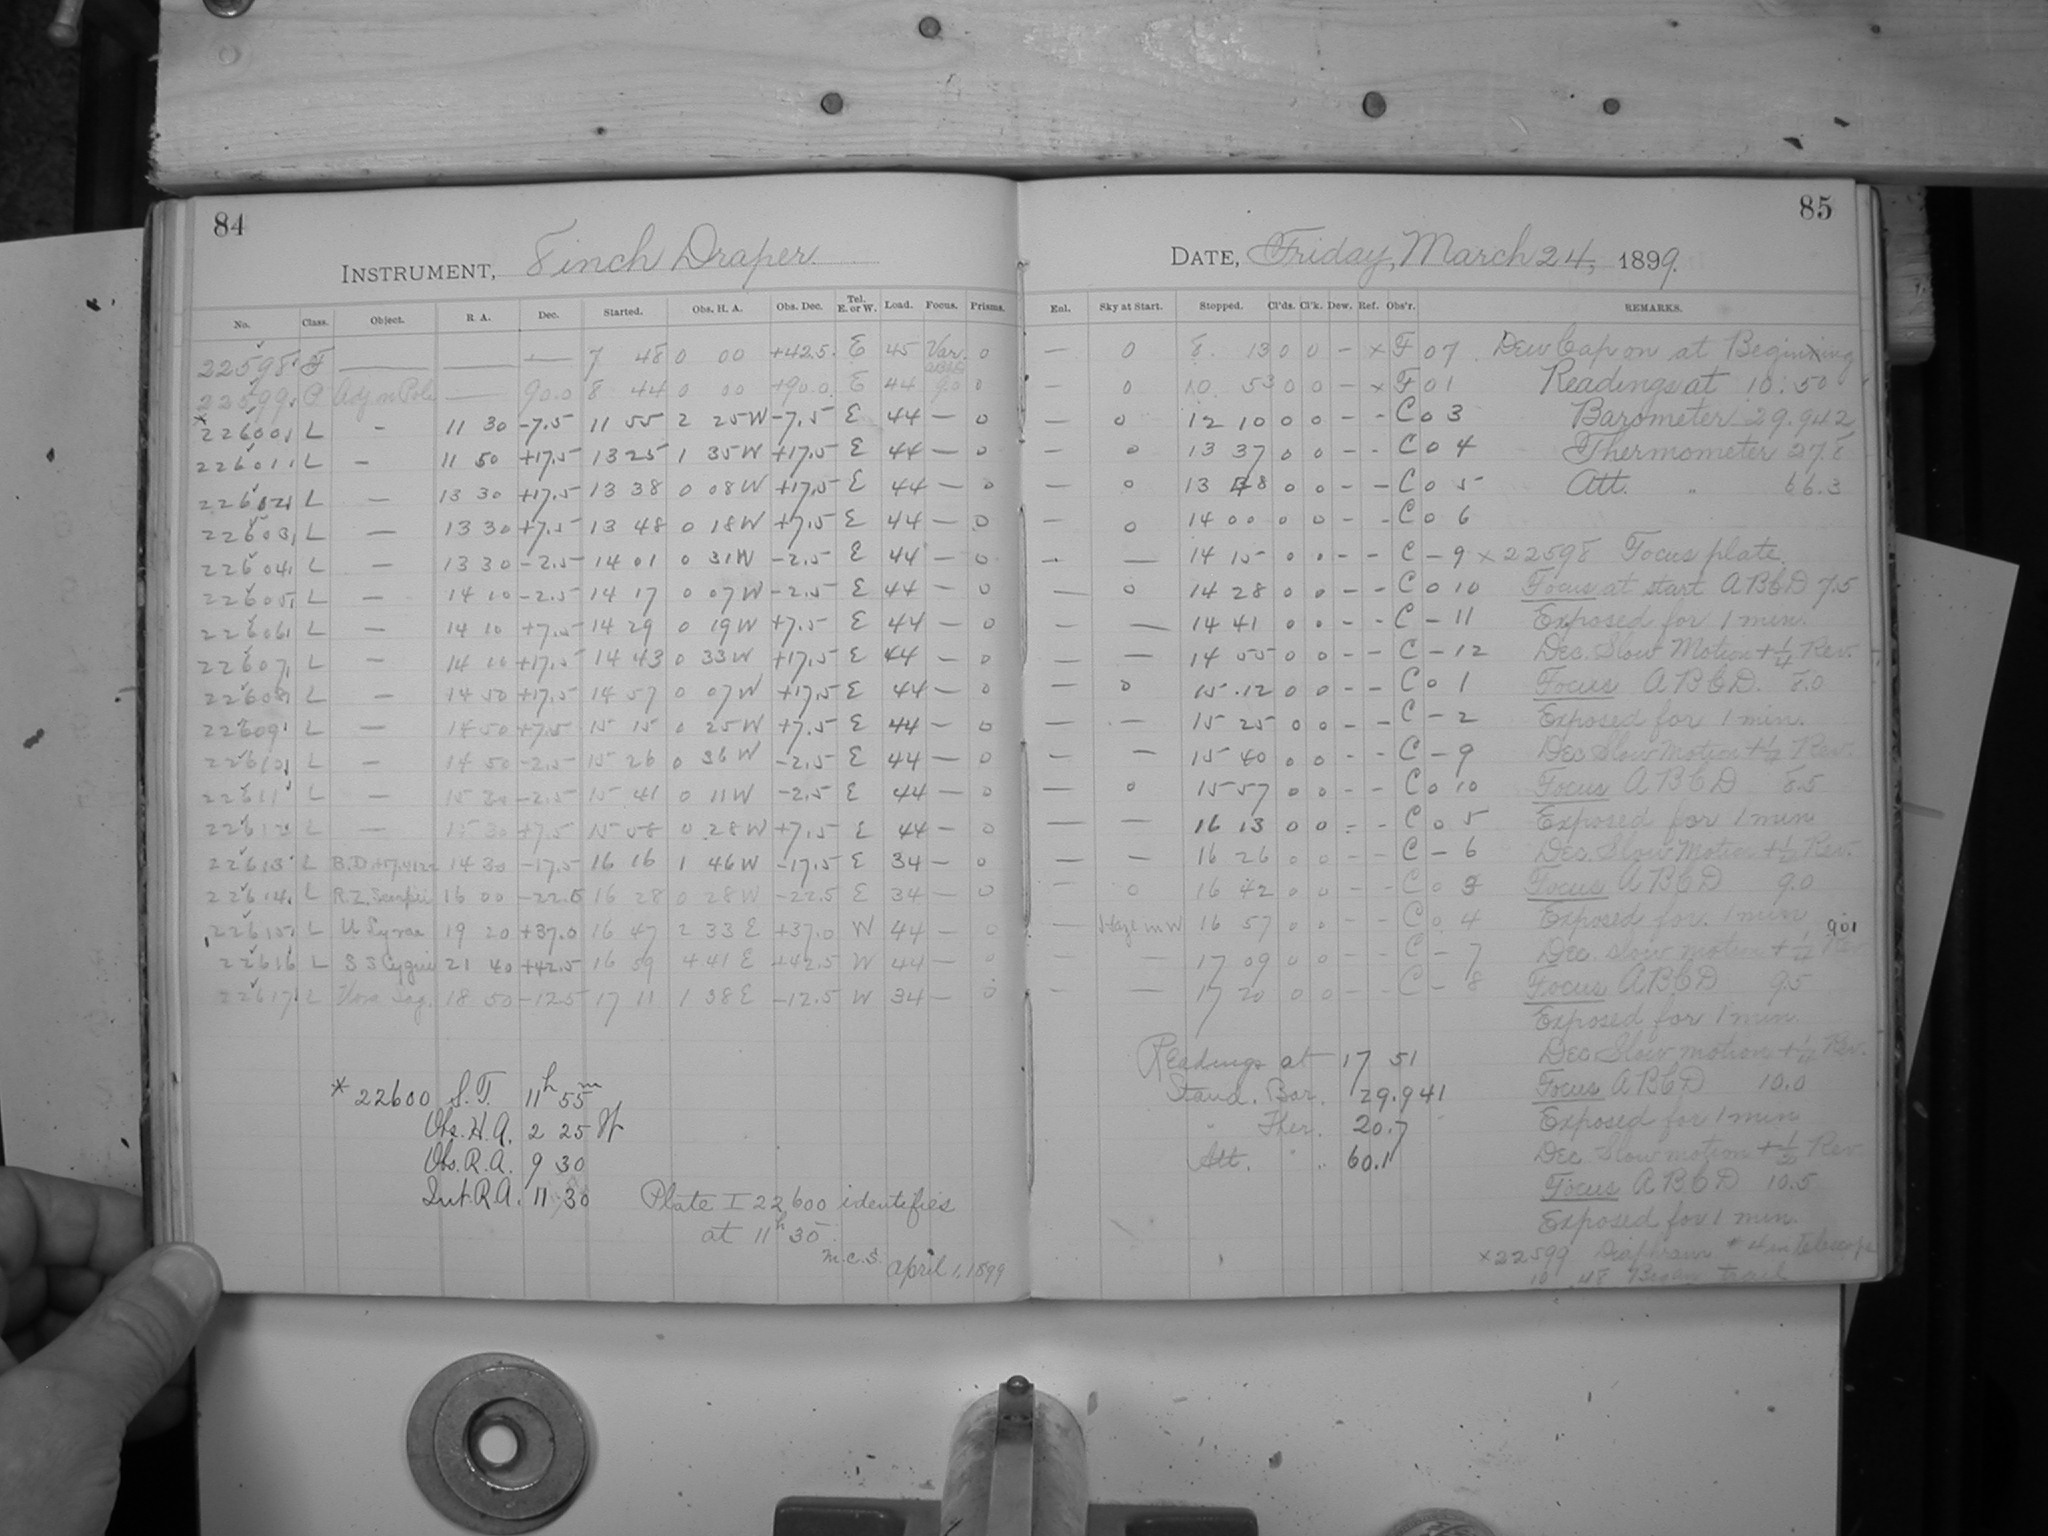 84
INSTRUMENT, 8 inch Draper.
No. Class. Object. R. A. Dec. Started. Obs. H. A. Obs. Dec. Tel. E. or W. Load. Focus. Prisms.
22598 F — — — 7 48 0 00 +42.5 E 45 Var. 0
22599 P Adj n Pole — 90.0 8 44 0 00 +90.0 E 44 9.0 0
*22600 L - 11 30 -7.5 11 55 2 25W -7.5 E 44 — 0
22601 L - 11 50 +17.5 13 25 1 35W +17.5 E 44 — 0
22602 L — 13 30 +17.5 13 38 0 08W +17.5 E 44 — 0
22603 L — 13 30 +7.5 13 48 0 18W +7.5 E 44 — 0
22604 L — 13 30 -2.5 14 01 0 31W -2.5 E 44 — 0
22605 L — 14 10 -2.5 14 17 0 07W -2.5 E 44 — 0
22606 L — 14 10 +7.5 14 29 0 19W +7.5 E 44 — 0
22607 L — 14 10 +17.5 14 43 0 33W +17.5 E 44 — 0
22608 L — 14 50 +17.5 14 57 0 07W +17.5 E 44 — 0
22609 L — 14 50 +7.5 15 15 0 25W +7.5 E 44 — 0
22610 L — 14 50 -2.5 15 26 0 36W -2.5 E 44 — 0
22611 L — 15 30 -2.5 15 41 0 11W -2.5 E 44 — 0
22612 L — 15 30 +7.5 15 58 0 28W +7.5 E 44 — 0
22613 L 14 30 -17.5 16 16 1 46W -17.5 E 34 — 0
22614 L R.Z. Scorpii 16 00 -22.5 16 28 0 28W -22.5 E 34 — 0
22615 L U Lyrae 19 20 +37.0 16 47 2 33 E +37.0 W 44 — 0
22616 L SS Cygni 21 40 +42.5 16 59 4 41 E +42.5 W 44 — 0
22617 L Nova Sag. 18 50 -12.5 17 11 1 38E -12.5 W 34 — 0
* 22600 S.T. 11h 55m
Obs. H.A. 2 25 W
Obs. R.A. 9 30
Int. R.A. 11 30 Plate I 22600 identifies
at 11h 30
M.C.S. April 1, 1899
85
DATE, Friday, March 24, 1899.
Enl. Sky at Start. Stopped. Cl'ds. Cl'k. Dew. Ref. Obs'r. REMARKS.
— 0 8 13 0 0 - x F 0 7 Dew Cap on at Beginning
— 0 10 53 0 0 - x F 0 1 Readings at 10:50
— 0 12 10 0 0 - - C 0 3 Barometer 29.942
— 0 13 37 0 0 - - C 0 4 Thermometer 27.8
— 0 13 48 0 0 - - C 0 5 Att. " 66.3
— 0 14 00 0 0 - - C 0 6
— — 14 15 0 0 - - C - 9 x 22598 Focus plate
— 0 14 28 0 0 - - C 0 10 Focus at start ABCD 7.5
— — 14 41 0 0 - - C - 11 Exposed for 1 min.
— — 14 55 0 0 - - C - 12 Dec. Slow Motion + 1/4 Rev.
— 0 15 12 0 0 - - C 0 1 Focus ABCD. 8.0
— — 15 25 0 0 - - C - 2 Exposed for 1 min.
— — 15 40 0 0 - - C - 9 Dec Slow Motion Rev.
— 0 15 57 0 0 - - C 0 10 Focus ABCD 8.5
— — 16 13 0 0 - - C 0 5 Exposed for 1 min
— — 16 26 0 0 - - C - 6 Dec. Slow Motion Rev.
— 0 16 42 0 0 - - C 0 3 Focus ABCD 9.0
— Haze in W 16 57 0 0 - - C 0 4 Exposed for 1 min 901
— — 17 09 0 0 - - C - 7 Dec. slow motion Rev
— — 17 20 0 0 - - C - 8 Focus ABCD 9.5
Exposed for 1 min.
Readings at 17 51 Dec. Slow motion Rev.
Stand. Bar. 29.941 Focus ABCD 10.0
" Ther. 20.7 Exposed for 1 min
Att. " " 60.1 Dec. Slow motion Rev
Focus ABCD 10.5
Exposed for 1 min.
x 22599 Diaphram # 4 in Telescope
10 48 Began trail